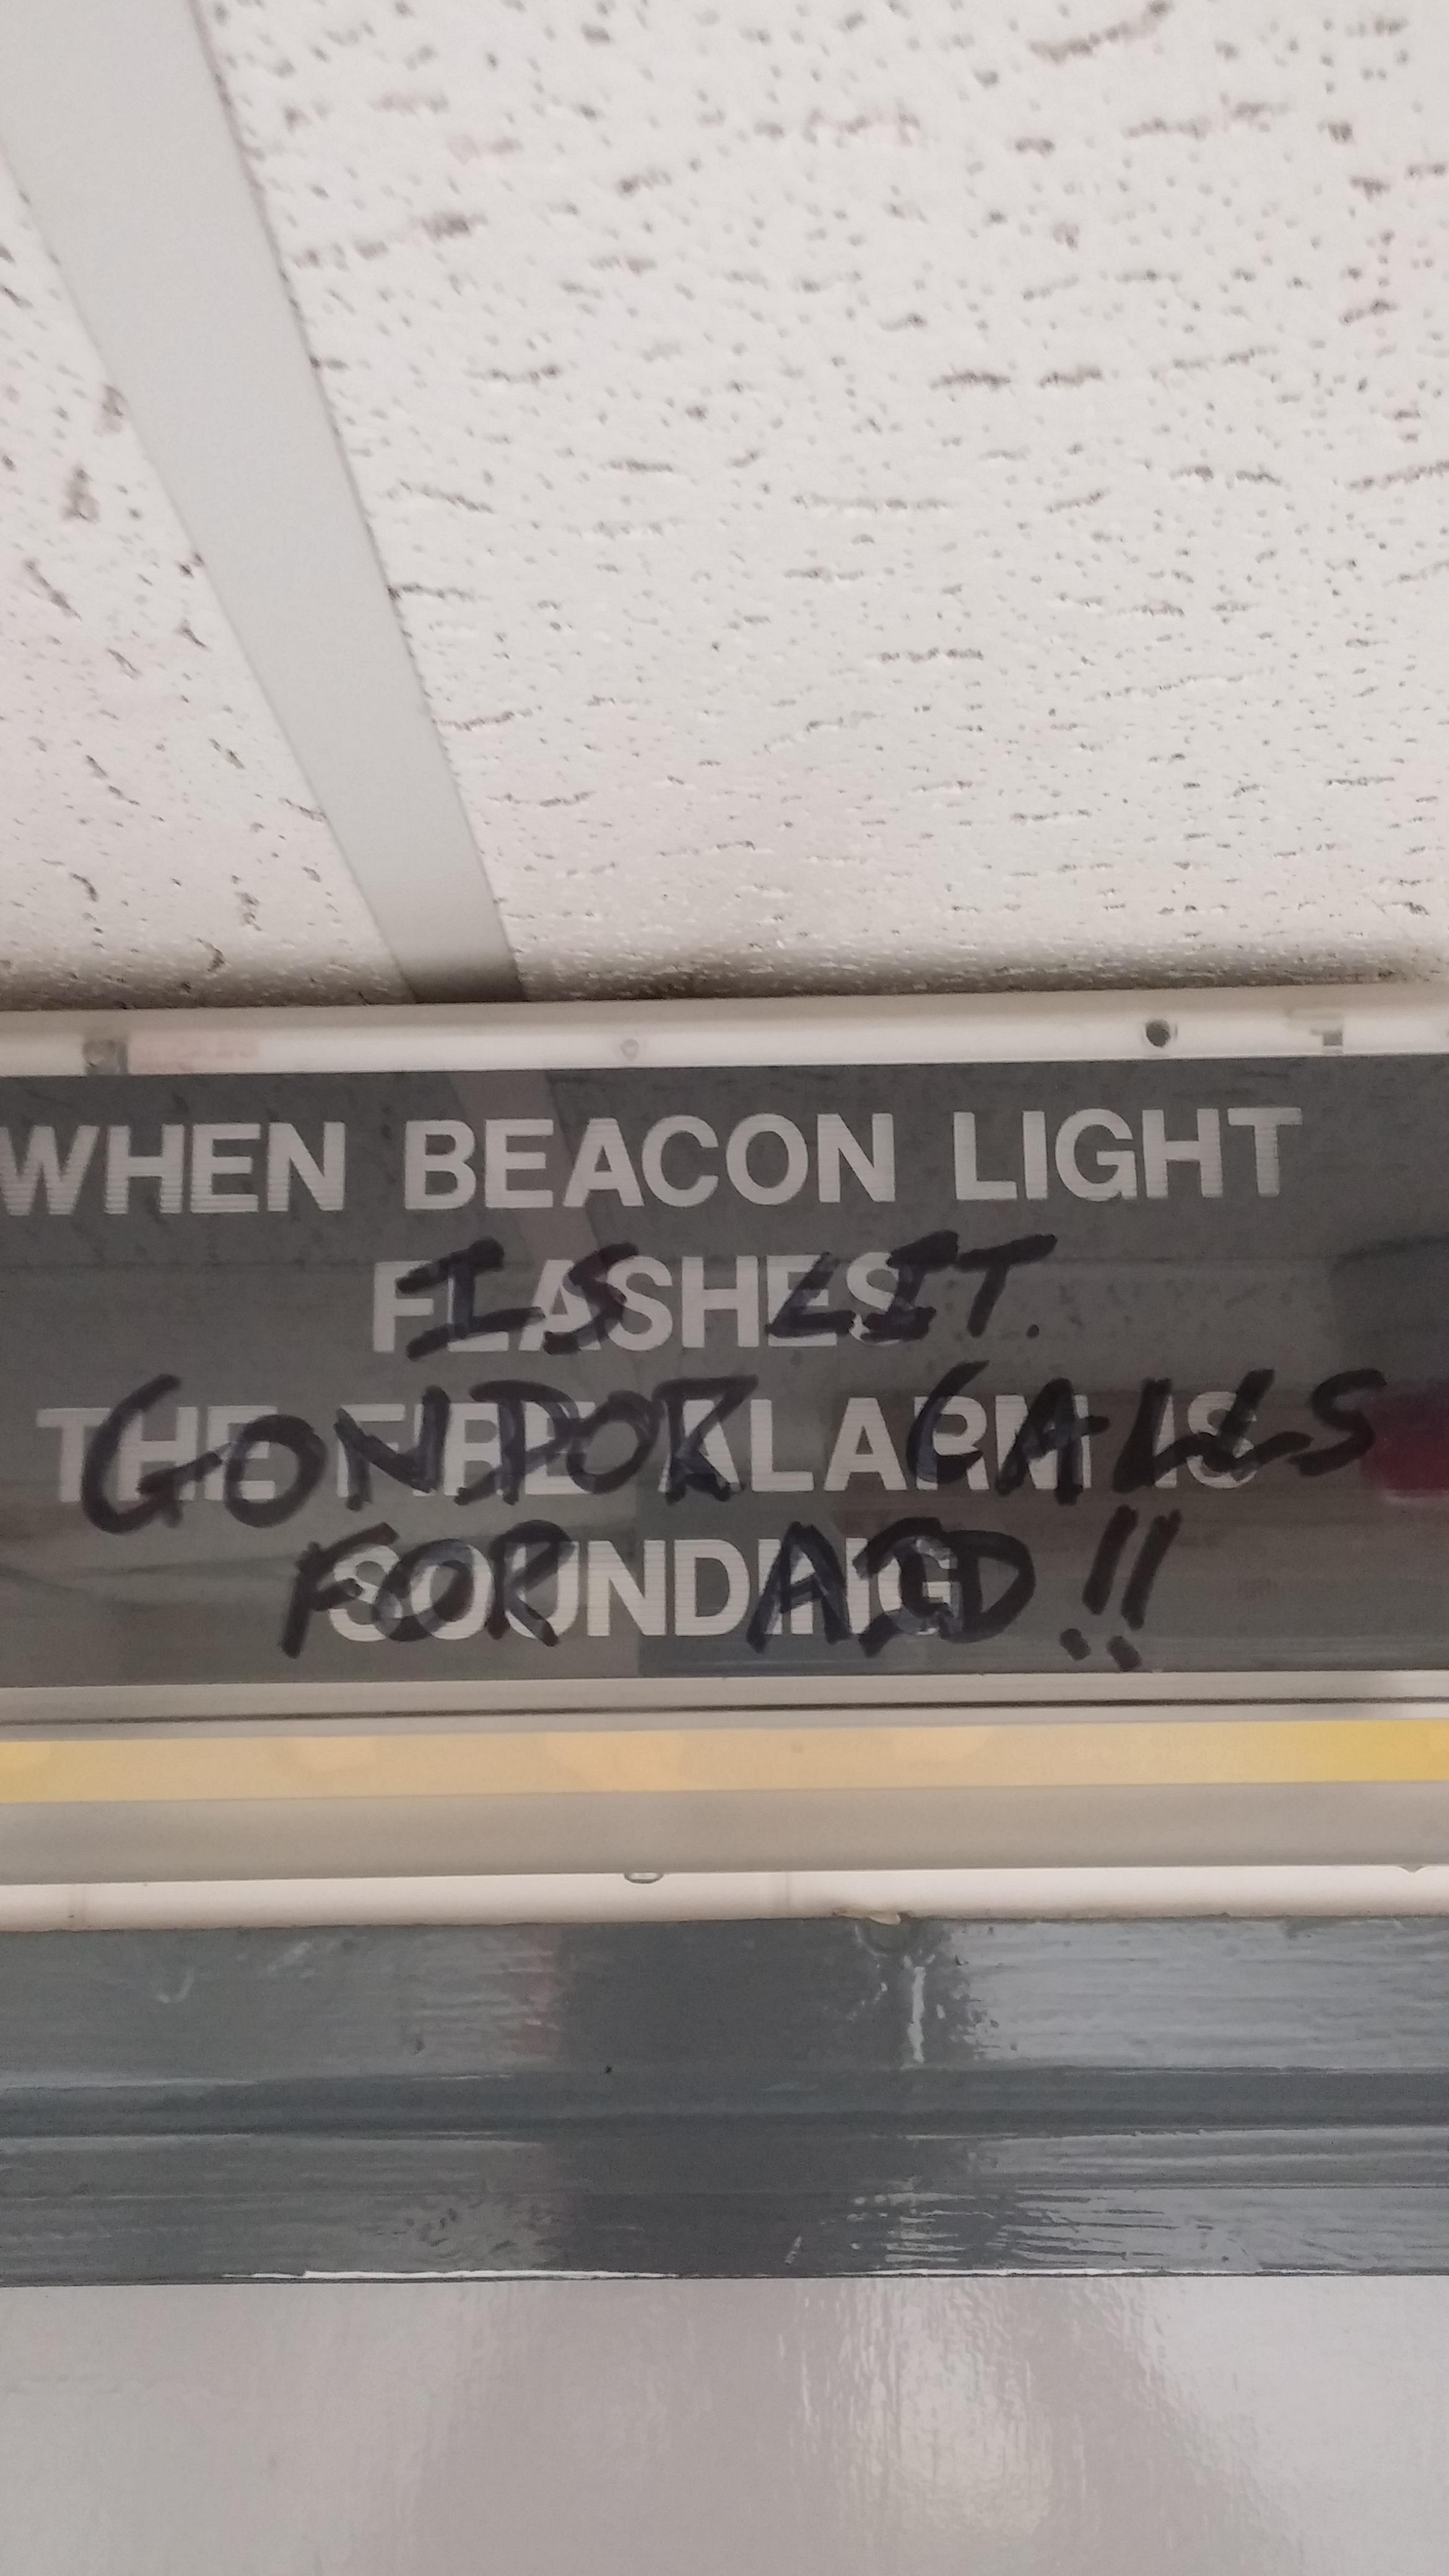 WHEN BEACON LIGHT
FLASHES
IS LIT.
THE FIRE ALARM IS
GONDOR CALLS
SOUNDING
FOR AID!!